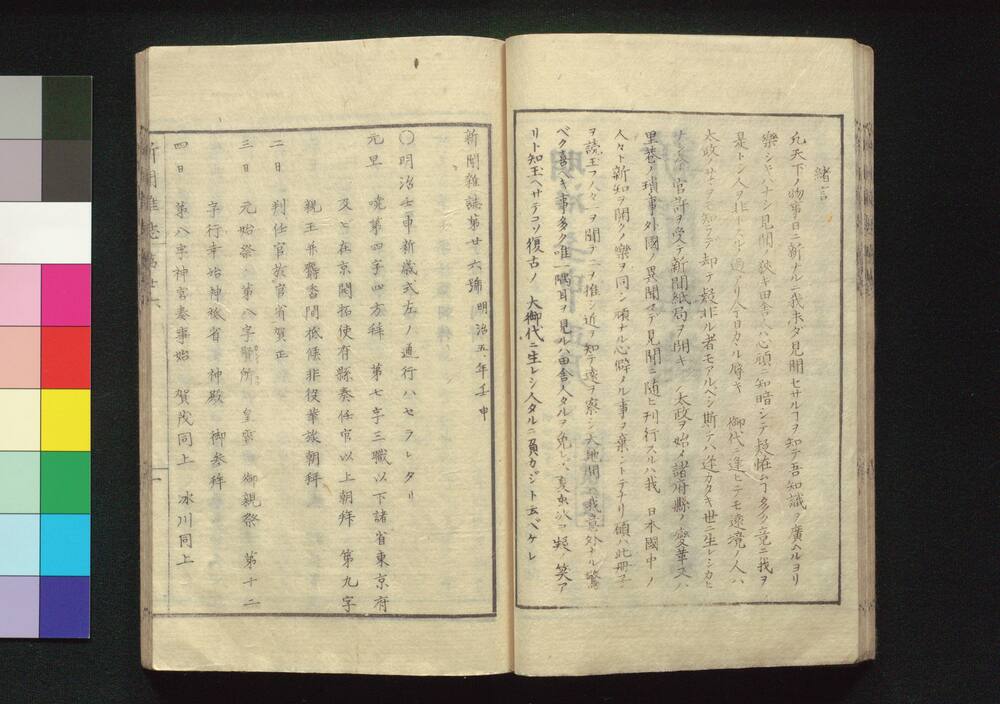 緒言
凡天下ノ物事日ニ新ナル一我未ダ見聞セサルヿヲ知テ吾知識ヲ廣ヘルヨリ
樂シキハナシ見聞狹キ田舎人ハ心頑ニ知暗シテ疑怪ムヿ多ク竟ニ我ヲ
是トシ人ヲ非トスルニ過リ今日カヽル尊キ 御代ニ逢ヒテモ遠境ノ人ハ
太政ノサマヲモ知ラテ却テ疑誹ル者モアルベシ斯テハ逢カタキ世ニ生レシカヒ
ナシ今 官許ヲ受テ新聞紙局ヲ開キ 太政ヲ始メ諸府縣ノ變革又ハ
里巷ノ瑣事外國ノ異聞マデ見聞ニ随ヒ刊行スルハ我 日本國中ノ
人々ト新知ヲ開クノ樂ヲ同シ頑ナル心癖メル事ヲ棄ントテナリ願ハ此冊子
ヲ讀玉フ人々一ヲ聞テ二ヲ推シ近ヲ知テ遠ヲ察シ天地間ニハ我意外ナル驚
ベク喜ベキ事多ク唯一隅耳ヲ見ルハ田舎人タルヲ免レズ夏虫氷ヲ疑ノ笑ア
リト知玉ヘサテコソ復古ノ 大御代ニ生レシ人タルニ負カジト云ベケレ
新聞雜誌第廿六號 明治五年壬申
〇明治壬申新歳式左ノ通行ハセラレタリ
元旦 曉第四字四方拜 第七字三職以下諸省東京府
及ヒ在京開拓使府縣奏任官以上朝拜 第九字
親王并麝香間祗候非役華族朝拜
二日 判任官於官省賀正
三日 元始祭 第八字賢所 皇靈 御親祭 第十二
字行幸始神祇省 神殿 御参拜
四日 第八字神宮奏事始 賀茂同上 氷川同上
新聞雜誌 第廿六
一